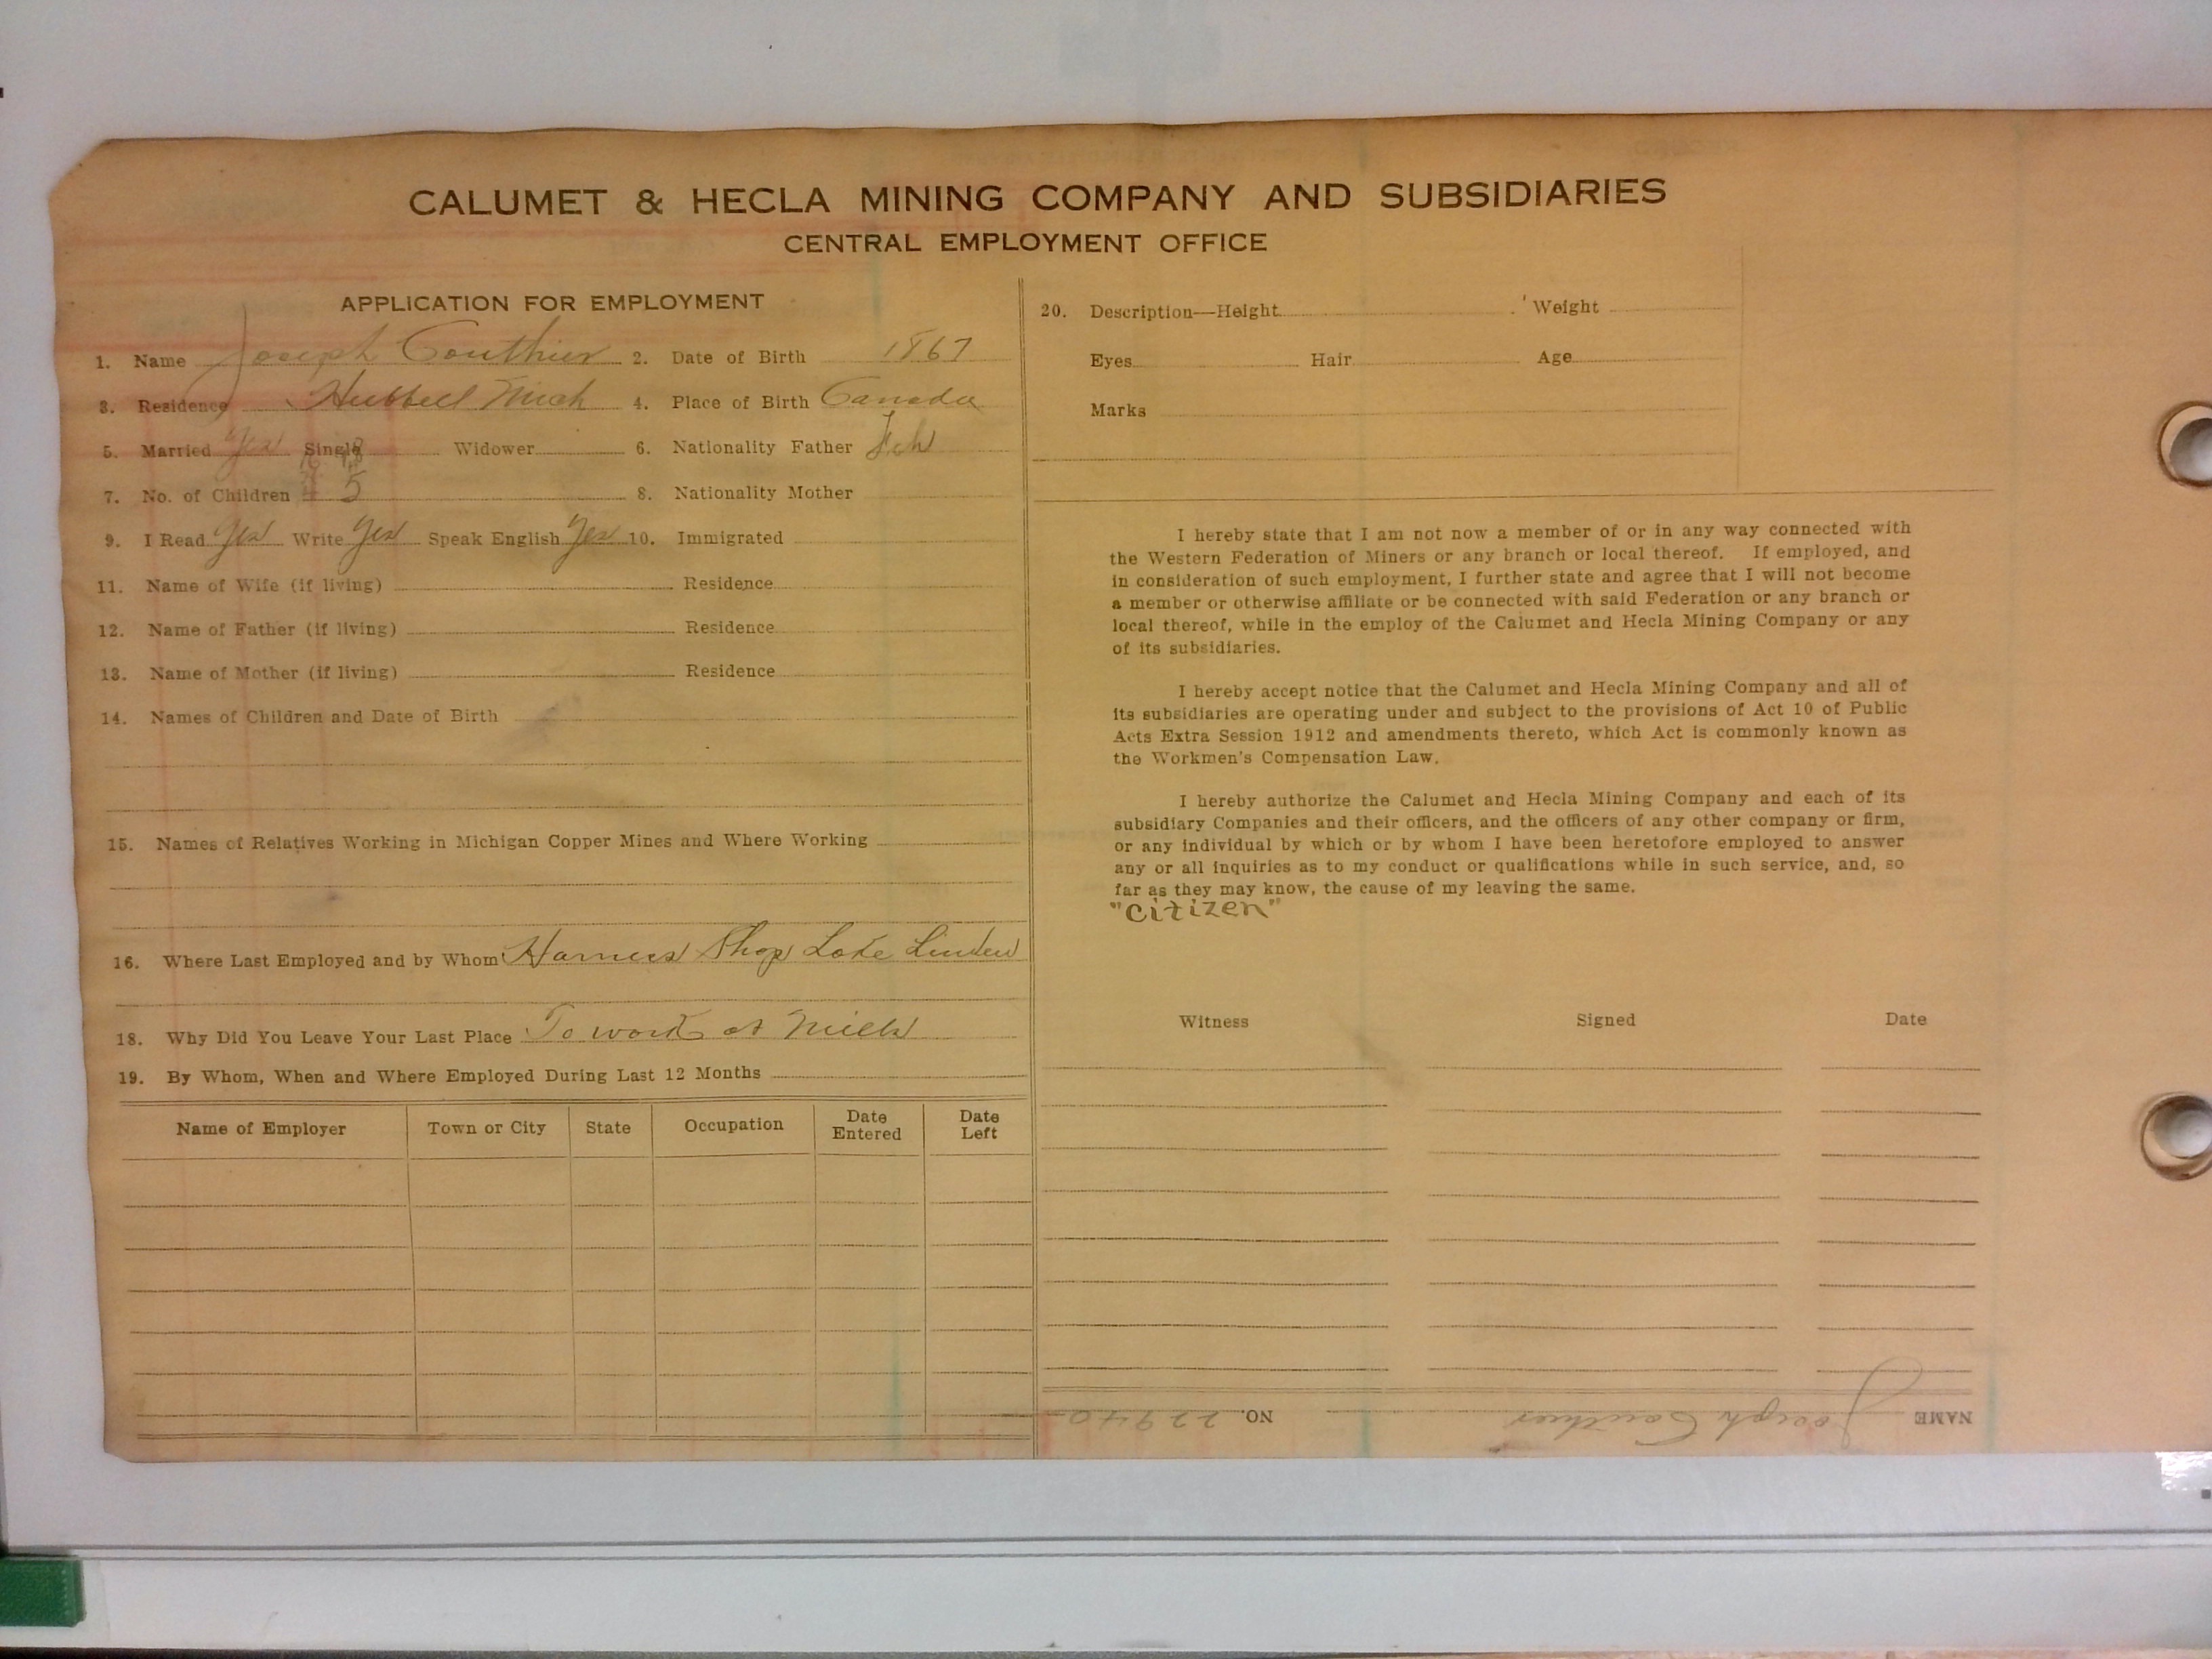 CALUMET & HECLA MINING COMPANY AND SUBSIDIARIES
CENTRAL EMPLOYMENT OFFICE
APPLICATION FOR EMPLOYMENT
1. Name Joseph Gouthier 2. Date of Birth 1867
3. Residence Hubbell Mich 4. Place of Birth Canada
5. Married Yes Single Widower 6. Nationality Father Fch
7. No. of Children 5 8. Nationality Mother
9. I Read Yes Write Yes Speak English Yes 10. Immigrated
11. Name of Wife (if living) Residence
12. Name of Father (if living) Residence
13. Name of Mother (if living) Residence
14. Names of Children and Date of Birth
15. Names of Relatives Working in Michigan Copper Mines and Where Working
16. Where Last Employed and by Whom Harness Shop Lake Linden
18. Why Did You Leave Your Last Place To work at Mills
19. By Whom, When and Where Employed During Last 12 Months
Name of Employer Town or City State Occupation Date Entered Date Left
20. Description—Height Weight
Eyes Hair Age
Marks
I hereby state that I am not now a member of or in any way connected with
the Western Federation of Miners or any branch or local thereof. If employed, and
in consideration of such employment, I further state and agree that I will not become
a member or otherwise affiliate or be connected with said Federation or any branch or
local thereof, while in the employ of the Calumet and Hecla Mining Company or any
of its subsidiaries.
I hereby accept notice that the Calumet and Hecla Mining Company and all of
its subsidiaries are operating under and subject to the provisions of Act 10 of Public
Acts Extra Session 1912 and amendments thereto, which Act is commonly known as
the Workmen's Compensation Law.
I hereby authorize the Calumet and Hecla Mining Company and each of its
subsidiary Companies and their officers, and the officers of any other company or firm,
or any individual by which or by whom I have been heretofore employed to answer
any or all inquiries as to my conduct or qualifications while in such service, and, so
far as they may know, the cause of my leaving the same.
"Citizen"
Witness Signed Date
NAME Joseph Gouthier NO. 22940